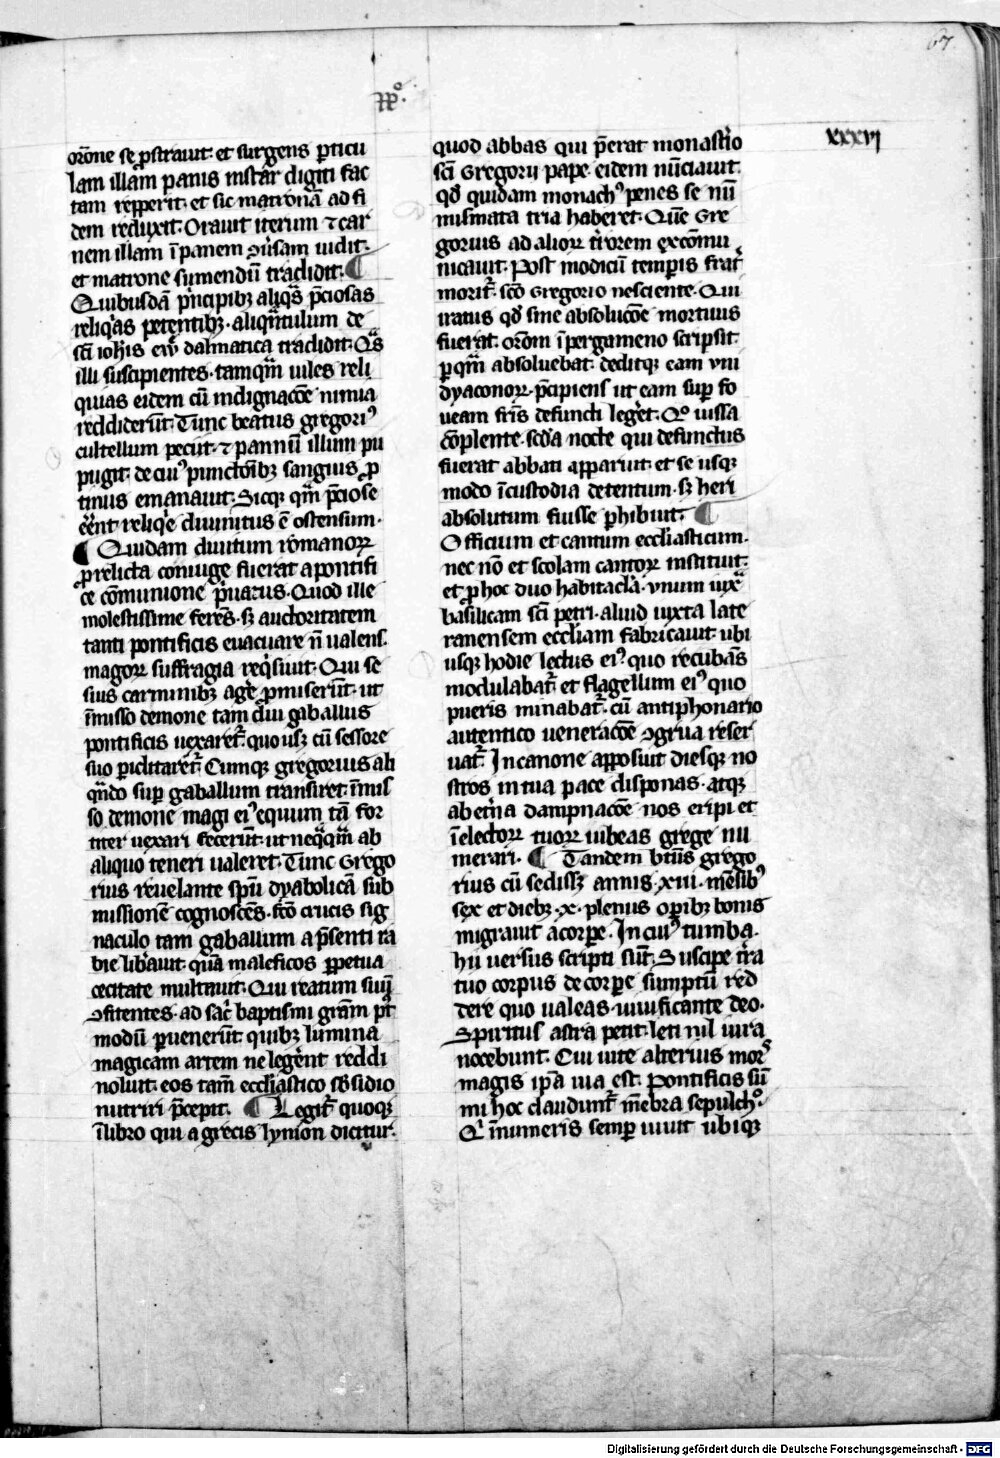 67
xxxvj
oröne se ꝓstrauit· et surgens ꝑticu
lam illam panis instar digiti fac
tam repperit· et sic matronā ad fi
dem reduxit· Orauit iterum ⁊ car
nem illam ī panem ꝯuersam uidit·
et matrone sumendū tradidit· ¶
Quibusdā p͛ncipibꝫ aliq̄s p̄ciosas
reliq͛as petentibꝫ· aliqͣntulum de
sc̄i ioh̄is ew̄ dalmatica tradidit· Qͣs
illi suscipientes· tamqͣm uiles reli
quias eidem cū indignac̄oe nimia
reddiderūt· Tunc beatus gregoriꝰ
cultellum peciit· ⁊ pannū illum pu
pugit· de cuiꝰ punctōibꝫ sanguis ꝓ
tinus emanauit· Sicqꝫ qͣm p̄ciose
eēnt reliq̄e diuinitus ē ostensum·
¶ Quidam diuitum romanoꝝ
ꝓ relicta coniuge fuerat a pontifi
ce cōmunione p͛uatus· Quod ille
molestissime ferēs· sꝫ auctoritatem
tanti pontificis euacuare n̄ ualens·
magoꝝ suffragia req͛siuit· Qui se
suis carminibꝫ agē ꝓmiserūt· ut
īmisso demone tam diu gaballus
pontificis uexaret᷑· quousꝫ cū sessore
suo ꝑiclitaret᷑· Cumqꝫ gregorius ali
qͣndo suꝑ gaballum transiret· īmis
so demone magi eiꝰ equum tā for
titer uexari fecerūt· ut neqͣqͣm ab
aliquo teneri ualeret· Tunc Grego
rius reuelante spū dyabolicā sub
missionē cognoscēs· fc̄o crucis sig
naculo tam gaballum a p̄senti ra
bie lib͛auit· quā maleficos ꝑpetua
cecitate multauit· Qui reatum suū
ꝯfitentes· ad sac͛ baptismi gr̄am p̄t
modū ꝑuenerūt· quibꝫ lumina
magicam artem ne leg͛ent reddi
noluit· eos tam̄ eccl̄iastico sb̄sidio
nutriri p̄cepit· ¶ Legit᷑ quoqꝫ
ī libro qui a grecis lymon dicitur·
quod abbas qui p̄erat monast͛io
sc̄i Gregorii pape· eidem nūciauit·
qd̄ quidam monachꝰ penes se nū
nismata tria haberet· Quē Gre
gorius ad alioꝝ t͛rorem excōmu
nicauit· Post modicū temꝑis frat͛
morit᷑· sc̄o Gregorio nesciente· Qui
iratus qd̄ sine absoluc̄oe mortuus
fuerat· orōm ī pergameno scripsit·
ꝑ qͣm absoluebat· deditqꝫ eam vni
dyaconoꝝ· p̄cipiens ut eam suꝑ fo
ueam fr̄is defuncti leg͛et· Qͦ iussa
cōplente· sc̄da nocte qui defunctus
fuerat abbati apparuit· et se usqꝫ
modo ī custodia detentum· sꝫ heri
absolutum fuisse ꝑhibuit· ¶
Officium et cantum eccl̄iasticum·
nec nō et scolam cantoꝝ instituit·
et ꝓ hoc duo habitacla· vnum iuxͣ
basilicam sc̄i petri· aliud iuxta late
ranensem eccl̄iam fabricauit· ubi
usqꝫ hodie lectus eiꝰ quo recubās
modulabat᷑· et flagellum eiꝰ quo
pueris minabat᷑· cū antiphonario
autentico ueneracōe ꝯgrua reser
uat᷑· In canone apposuit diesqꝫ no
stros in tua pace disponas· atqꝫ
ab et͛na dampnacōe nos eripi et
ī electoꝝ tuoꝝ iubeas grege nu
merari· ¶ Tandem bt̄us grego
rius cū sedissꝫ annis· xiii· mēsibꝰ
sex et diebꝫ ·x· plenus oꝑibꝫ bonis
migrauit a corꝑe· In cuiꝰ tumba·
hii uersus scripti sūt· Suscipe t͛ra
tuo corpus de corꝑe sumptū red
dere quo ualeas· uiuificante deo·
Spiritus astra petit· leti nil iura
nocebunt· Cui uite alterius mors
magis ip̄a uia est· Pontificis sūm
mi hoc claudunt᷑ mēbra sepulchͦ·
Qͥ īnumeris semꝑ uiuit ubiqꝫ
Digitalisierung gefördert durch die Deutsche Forschungsgemeinschaft - DFG